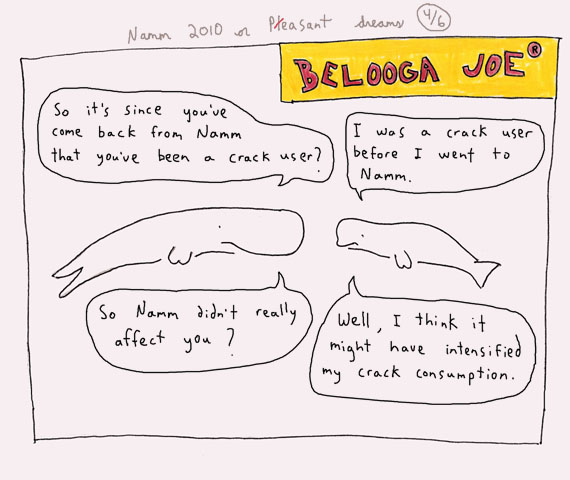 Namm 2010 or Pleasant dreams 4/6
BELOOGA JOE®
So it's since you've
come back from Namm
that you've been a crack user?
I was a crack user
before I went to
Namm.
So Namm didn't really
affect you?
Well, I think it
might have intensified
my crack consumption.